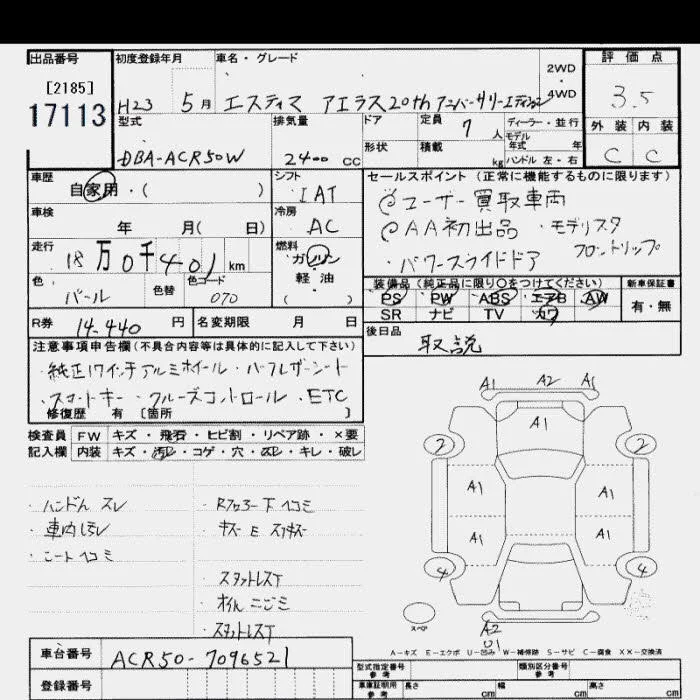 出品番号 初度登録年月 車名・グレード 2WD・4WD 評価点
[2185]
17113
H23 5月 エスティマ アエラス20th アニバーサリーエディション
3.5
型式 排気量 ドア 定員 7人 ディーラー・並行 外装 内装
DBA-ACR50W 2400 cc 形状 積載 kg モデル年式 年 ハンドル 左・右 C C
車歴 自家用・( ) シフト IAT セールスポイント (正常に機能するものに限ります)
ユーザー買取車両
車検 年 月( 日) 冷房 AC
AA初出品 ・モデリスタ
フロントリップ
走行 18万0千401km 燃料 ガソリン 軽油 ( )
・パワースライドドア
色 パール 色替 色コード 070
装備品 (純正品に限り○をつけてください) 新車保証書
PS PW ABS エアB AW 有・無
SR ナビ TV カワ
R券 14.440円 名変期限 月 日
後日品 取説
注意事項申告欄 (不具合内容等は具体的に記入して下さい)
・純正17インチアルミホイール・ハーフレザーシート
・スマートキー・クルーズコントロール・ETC
修復歴 有 〔箇所 〕
検査員記入欄 FW キズ・飛石・ヒビ割・リペア跡・×要
内装 キズ・汚レ・コゲ・穴・スレ・キレ・破レ
・ハンドルスレ
・車内汚レ
・シートヘコミ
・Rフロアー下ヘコミ
・スタットレスT
・オイルニゴミ
・スタットレスT
A1 A2 A1
A1
2 2
A1 A1
A1 A1
4 4
スペア
A2
U1
A-キズ E-エクボ U-凹み W-補修跡 S-サビ C-腐食 XX-交換済
車台番号 ACR50-7096521
型式指定番号 参考 類別区分番号 参考
登録番号
車庫証明用 参考 長さ cm 幅 cm 高さ cm